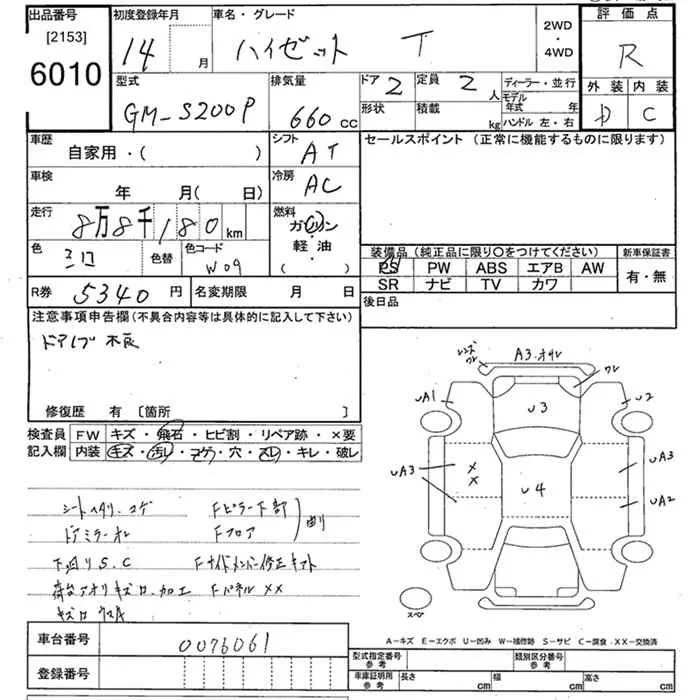 出品番号
[2153]
6010
初度登録年月
14 月
車名・グレード
ハイゼット T
2WD
・
4WD
評価点
R
外装 内装
D C
型式
GM-S200P
排気量
660 cc
ドア 2
定員 2 人
形状
積載 kg
ディーラー・並行
モデル年式 年
ハンドル 左・右
車歴
自家用・( )
シフト
AT
セールスポイント (正常に機能するものに限ります)
車検
年 月( 日)
冷房
AC
走行
8万8千180 km
燃料
ガソリン
・
軽油
( )
色
シロ
色替
色コード
W09
装備品 (純正品に限り〇をつけてください)
新車保証書
PS PW ABS エアB AW
SR ナビ TV カワ
有・無
R券 5340 円
名変期限 月 日
後日品
注意事項申告欄(不具合内容等は具体的に記入して下さい)
ドアノブ不良
修復歴 有 〔箇所 〕
検査員記入欄
FW キズ・飛石・ヒビ割・リペア跡・×要
内装 キズ・汚レ・コゲ・穴・スレ・キレ・破レ
シートヘタリ.コゲ Fピラー下部
ドアミラーオレ Fフロア
曲り
下回りS.C Fサイドメンバー修正キズ
荷台アオリキズロ.加工 Fパネル××
レンズワレ
A3.オサレ
ワレ
UA1
U2
U3
UA3
×
×
U4
UA3
UA2
スペア
A-キズ E-エクボ U-凹み W-補修跡 S-サビ C-腐食 ××-交換済
車台番号
0076061
登録番号
型式指定番号
参考
類別区分番号
参考
車庫証明用
参考
長さ cm
幅 cm
高さ cm